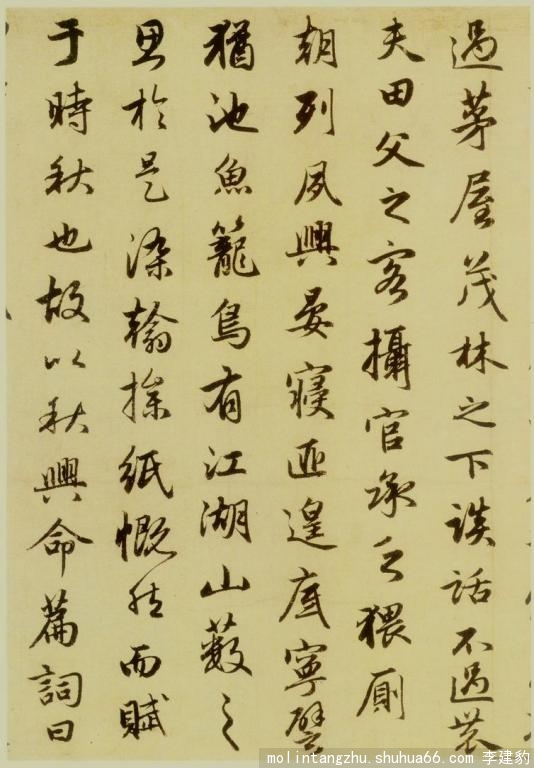 過茅屋茂林之下談話不過農
夫田父之客攝官承乏猥厠
朝列夙興晏寢匪遑底寧譬
猶池魚籠鳥有江湖山藪之
思於是染翰操紙慨然而賦
于時秋也故以秋興命篇詞曰
molintangzhu.shuhua66.com 李建豹